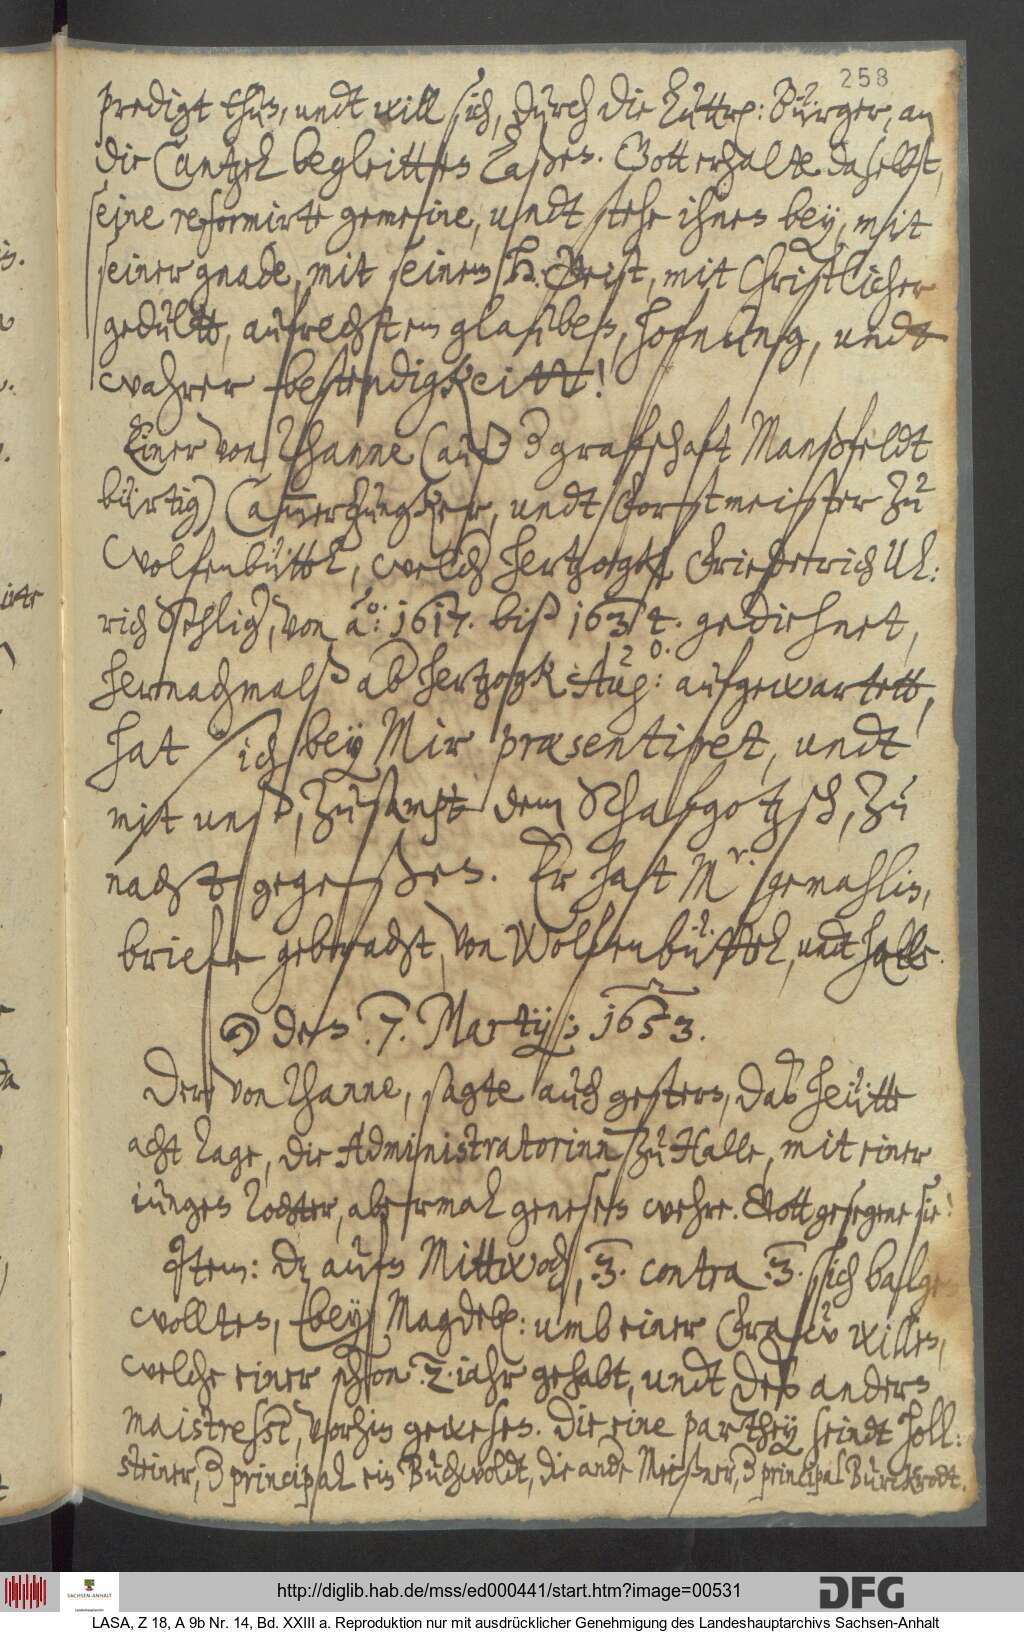 258
predigt thun, undt will sich, durch die Luttrⱥ: Bürger, an
die Cantzel begleitten laßen. Gott erhalte daselbst,
seine reformirte gemeine, undt stehe ihnen bey, mit
seiner gnade, mit seinem h. Geist, mit Christlicher
gedultt, aufrechtem glauben, hofnung, undt
wahrer bestendigkeitt!
Einer von Thanne (auß der grafschaft Manßfeldt
bürtig) Cammerjungker, undt Forstmeister zu
Wolfenbüttel, welch hertzogk Friederich Ul:
rich Sehlig, von ao: 1617. biß 1634. gediehnet,
hernachmalß ab hertzogk Aug: aufgewartett,
20.
hat sich bey Mir præsentiret, undt
mit unß, zusampt dem Schafgotzsch, zu
nacht gegeßen. Er hat Mr. gemahlin,
briefe gebracht, von Wolfenbüttel, undt halle.
☽ den .7. Martij; 1653.
Der von Thanne, sagte auch gestern, daß heütte
acht tage, die Administratorinn zu Halle, mit einer
iungen Tochter, abermal genesen wehre. Gott gesegene sie!
Item: daß aufn Mittwoch, .3. contra .3. sich balgen
wolten, bey Magdeb: umb einer Fraw willen,
welche einer schon .2. iahr gehabt, undt deß andern
maistresse, vorhin gewesen. Die eine parthey seindt holl:
steiner, der principal ein Buchwoldt, die ande Meißner, der principal Burckrodt.
http://diglib.hab.de/mss/ed000441/start.htm?image=00531
SACHSEN-ANHALT
DFG
LASA, Z 18, A 9b Nr. 14, Bd. XXIII a. Reproduktion nur mit ausdrücklicher Genehmigung des Landeshauptarchivs Sachsen-Anhalt